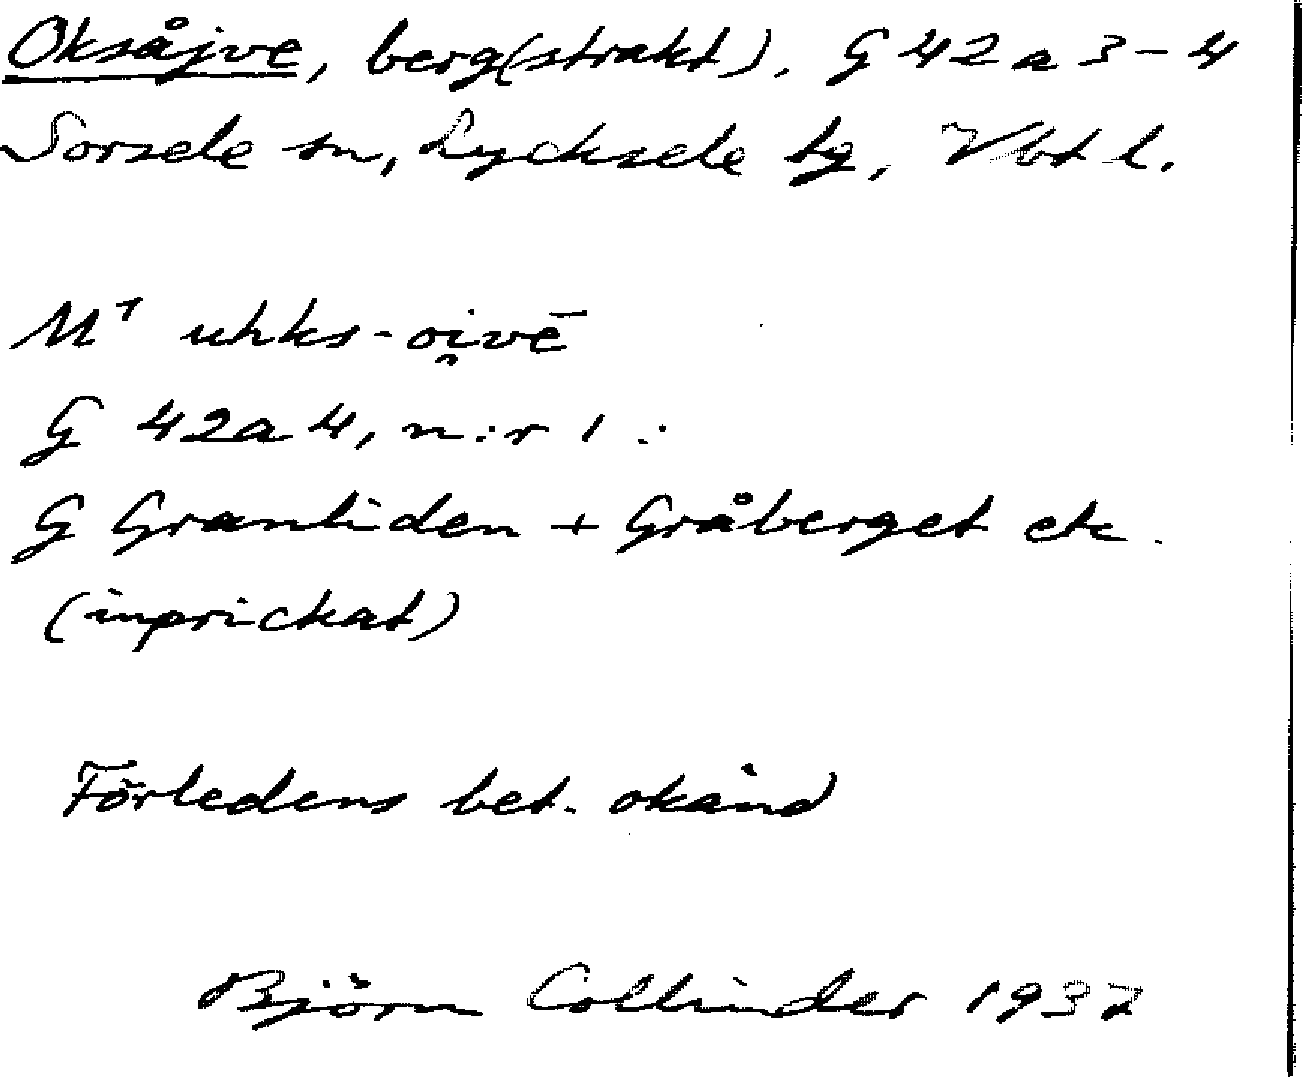 Oksåjve, berg(strakt). G 42 a 3-4
Sorsele sn, Lycksele tg, Vbt l.
M¹ uhks-oi̯vē
G 42a4, n:r 1 :
G Granliden + Gråberget etc.
(inprickat)
Förledens bet. okänd
Björn Collinder 1937